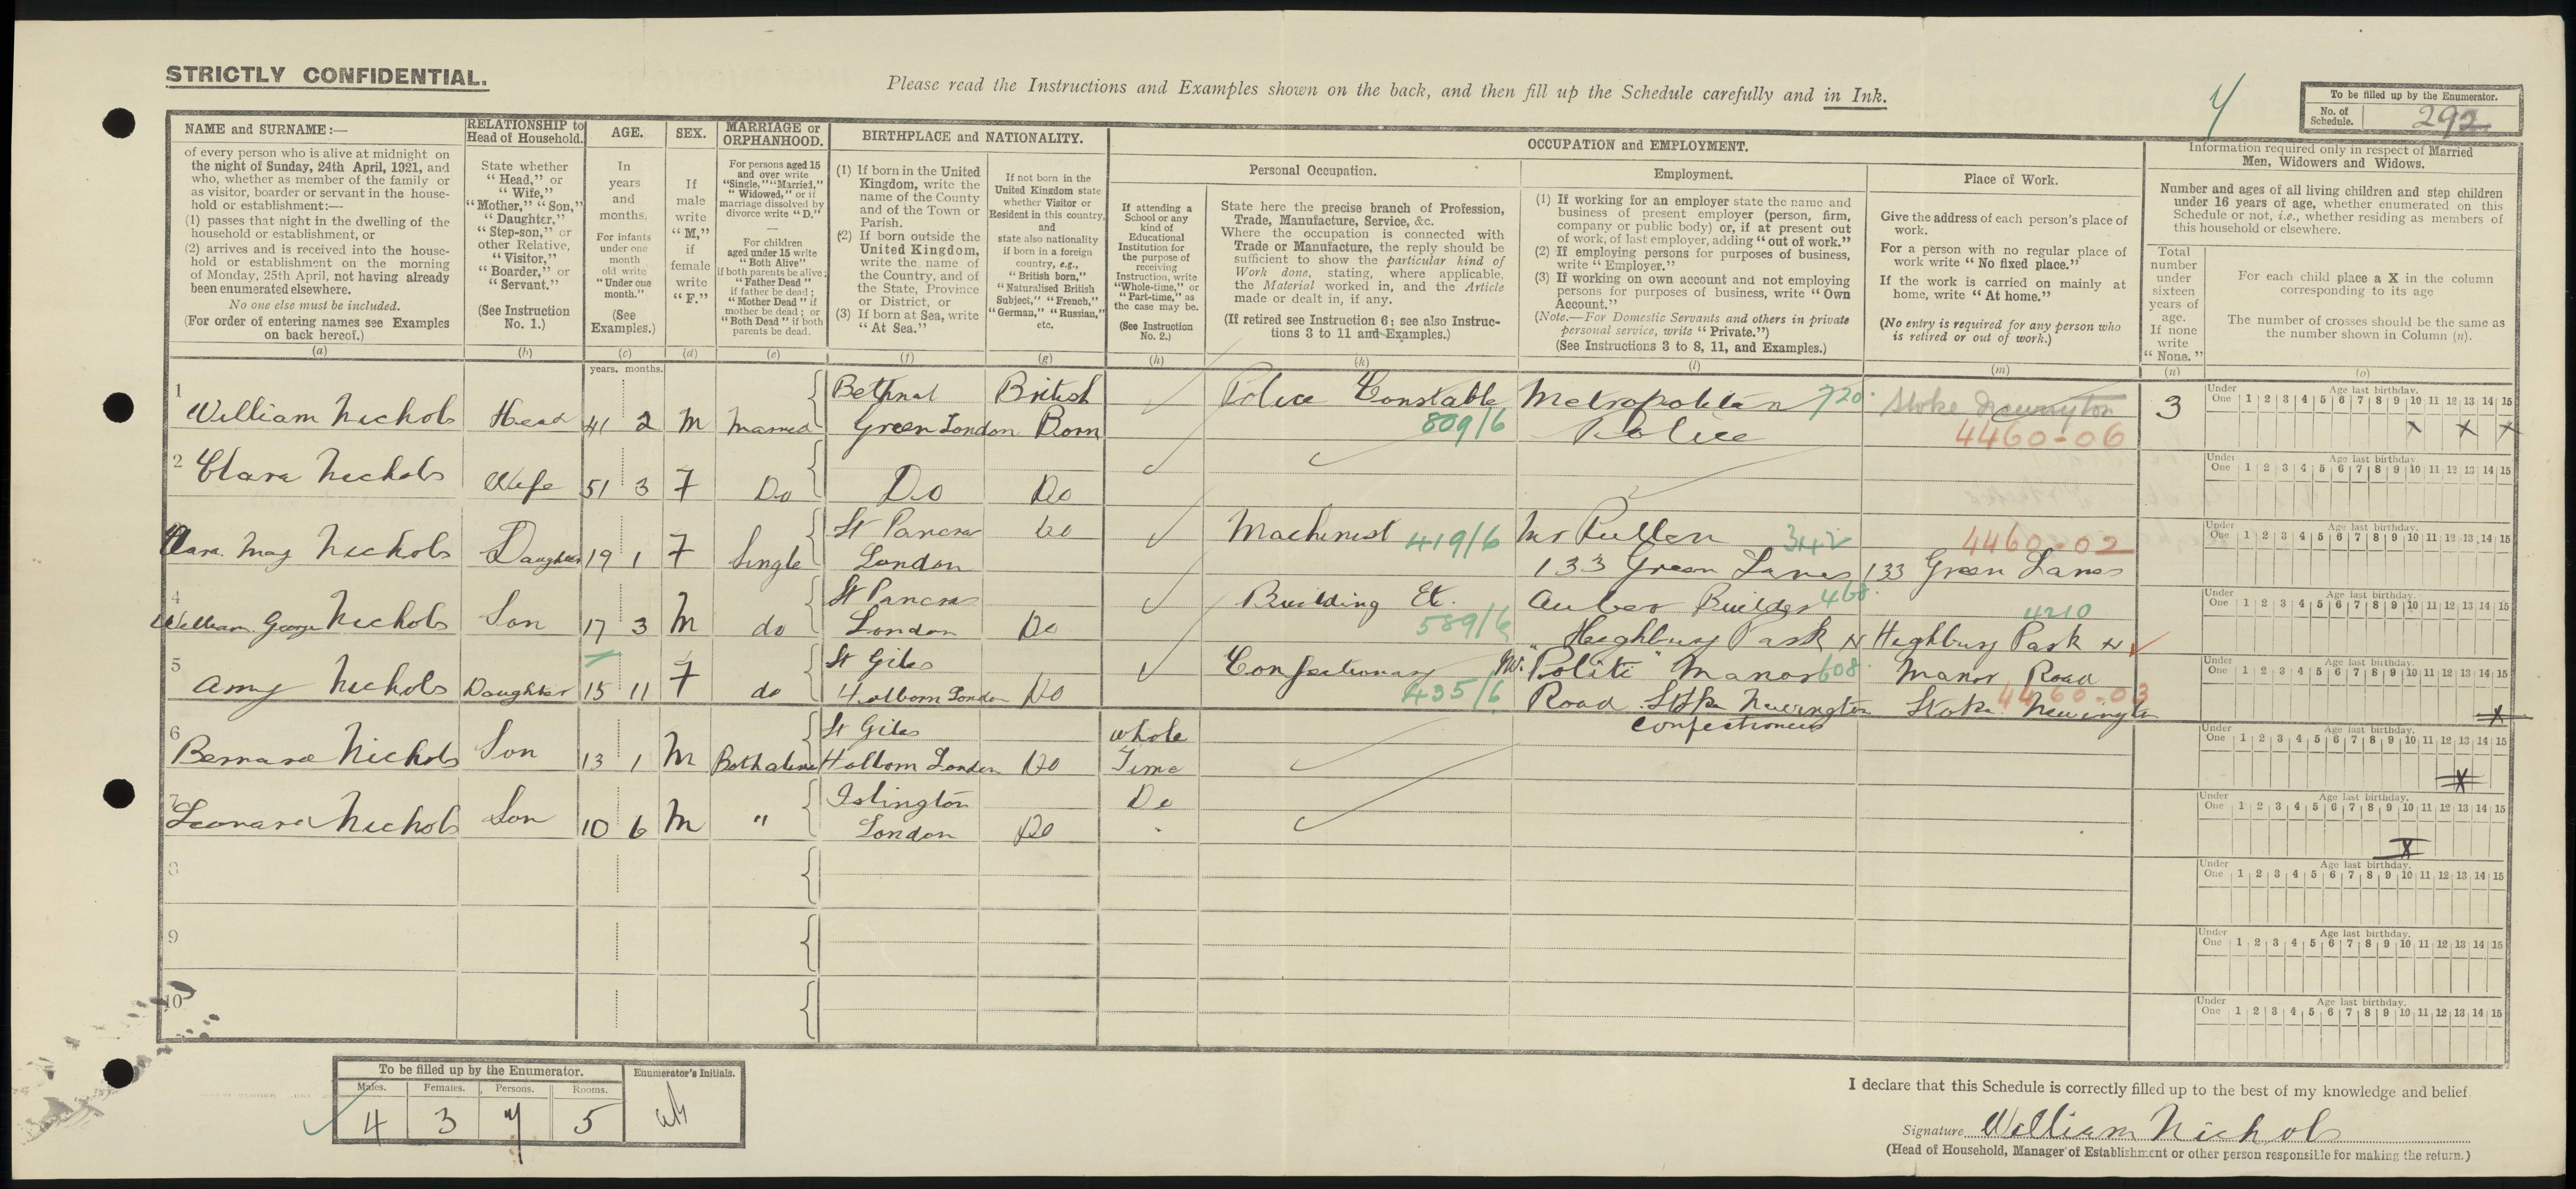 STRICTLY CONFIDENTIAL.
Please read the Instructions and Examples shown on the back, and then fill up the Schedule carefully and in Ink.
To be filled up by the Enumerator.
No. of Schedule. 292
NAME and SURNAME:—
of every person who is alive at midnight on
the night of Sunday, 24th April, 1921, and
who, whether as member of the family or
as visitor, boarder or servant in the house-
hold or establishment:—
(1) passes that night in the dwelling of the
household or establishment, or
(2) arrives and is received into the house-
hold or establishment on the morning
of Monday, 25th April, not having already
been enumerated elsewhere.
No one else must be included.
(For order of entering names see Examples
on back hereof.)
(a)
RELATIONSHIP to
Head of Household.
State whether
"Head," or
"Wife,"
"Mother," "Son,"
"Daughter,"
"Step-son," or
other Relative,
"Visitor,"
"Boarder," or
"Servant."
(See Instruction
No. 1.)
(b)
AGE.
In
years
and
months.
For infants
under one
month
old write
"Under one
month."
(See
Examples.)
(c)
years. months.
SEX.
If
male
write
"M,"
if
female
write
"F."
(d)
MARRIAGE or
ORPHANHOOD.
For persons aged 15
and over write
"Single," "Married,"
"Widowed," or if
marriage dissolved by
divorce write "D."
For children
aged under 15 write
"Both Alive"
if both parents be alive;
"Father Dead"
if father be dead;
"Mother Dead" if
mother be dead; or
"Both Dead" if both
parents be dead.
(e)
BIRTHPLACE and NATIONALITY.
(1) If born in the United
Kingdom, write the
name of the County
and of the Town or
Parish.
(2) If born outside the
United Kingdom,
write the name of
the Country, and of
the State, Province
or District, or
(3) If born at Sea, write
"At Sea."
(f)
If not born in the
United Kingdom state
whether Visitor or
Resident in this country,
and
state also nationality
if born in a foreign
country, e.g.,
"British born,"
"Naturalised British
Subject," "French,"
"German," "Russian,"
etc.
(g)
OCCUPATION and EMPLOYMENT.
If attending a
School or any
kind of
Educational
Institution for
the purpose of
receiving
Instruction, write
"Whole-time," or
"Part-time," as
the case may be.
(See Instruction
No. 2.)
(h)
Personal Occupation.
State here the precise branch of Profession,
Trade, Manufacture, Service, &c.
Where the occupation is connected with
Trade or Manufacture, the reply should be
sufficient to show the particular kind of
Work done, stating, where applicable,
the Material worked in, and the Article
made or dealt in, if any.
(If retired see Instruction 6; see also Instruc-
tions 3 to 11 and Examples.)
(k)
Employment.
(1) If working for an employer state the name and
business of present employer (person, firm,
company or public body) or, if at present out
of work, of last employer, adding "out of work."
(2) If employing persons for purposes of business,
write "Employer."
(3) If working on own account and not employing
persons for purposes of business, write "Own
Account."
(Note.—For Domestic Servants and others in private
personal service, write "Private.")
(See Instructions 3 to 8, 11, and Examples.)
(l)
Place of Work.
Give the address of each person's place of
work.
For a person with no regular place of
work write "No fixed place."
If the work is carried on mainly at
home, write "At home."
(No entry is required for any person who
is retired or out of work.)
(m)
Information required only in respect of Married
Men, Widowers and Widows.
Number and ages of all living children and step children
under 16 years of age, whether enumerated on this
Schedule or not, i.e., whether residing as members of
this household or elsewhere.
Total
number
under
sixteen
years of
age.
If none
write
"None."
(n)
For each child place a X in the column
corresponding to its age
The number of crosses should be the same as
the number shown in Column (n).
(o)
Under One 1 2 3 4 5 6 7 8 9 10 11 12 13 14 15
Age last birthday.
1 William Nichols Head 41 2 M Married Bethnal Green London British Born Police Constable 809/6 Metropolitan Police 720 Stoke Newington 4460-06 3 X X X
2 Clara Nichols Wife 51 3 F Do Do Do
Clara May Nichols Daughter 19 1 F Single St Pancras London Do Machinist 419/6 Mr Pullen 342 133 Green Lanes 4460-02 133 Green Lanes
4 William George Nichols Son 17 3 M do St Pancras London Do Building Etc. 589/6 Builder 468 Highbury Park N 4210 Highbury Park N
5 Amy Nichols Daughter 15 11 F do St Giles Holborn London Do Confectionary 435/6 "Politi" Manor 608 Road Stoke Newington Confectioners Manor Road Stoke Newington 4460-03 X
6 Bernard Nichols Son 13 1 M Both alive St Giles Holborn London Do Whole Time X
7 Leonard Nichols Son 10 6 M " Islington London Do Do X
8
9
10
To be filled up by the Enumerator.
Males. Females. Persons. Rooms.
4 3 7 5
Enumerator's Initials.
I declare that this Schedule is correctly filled up to the best of my knowledge and belief.
Signature William Nichols
(Head of Household, Manager of Establishment or other person responsible for making the return.)